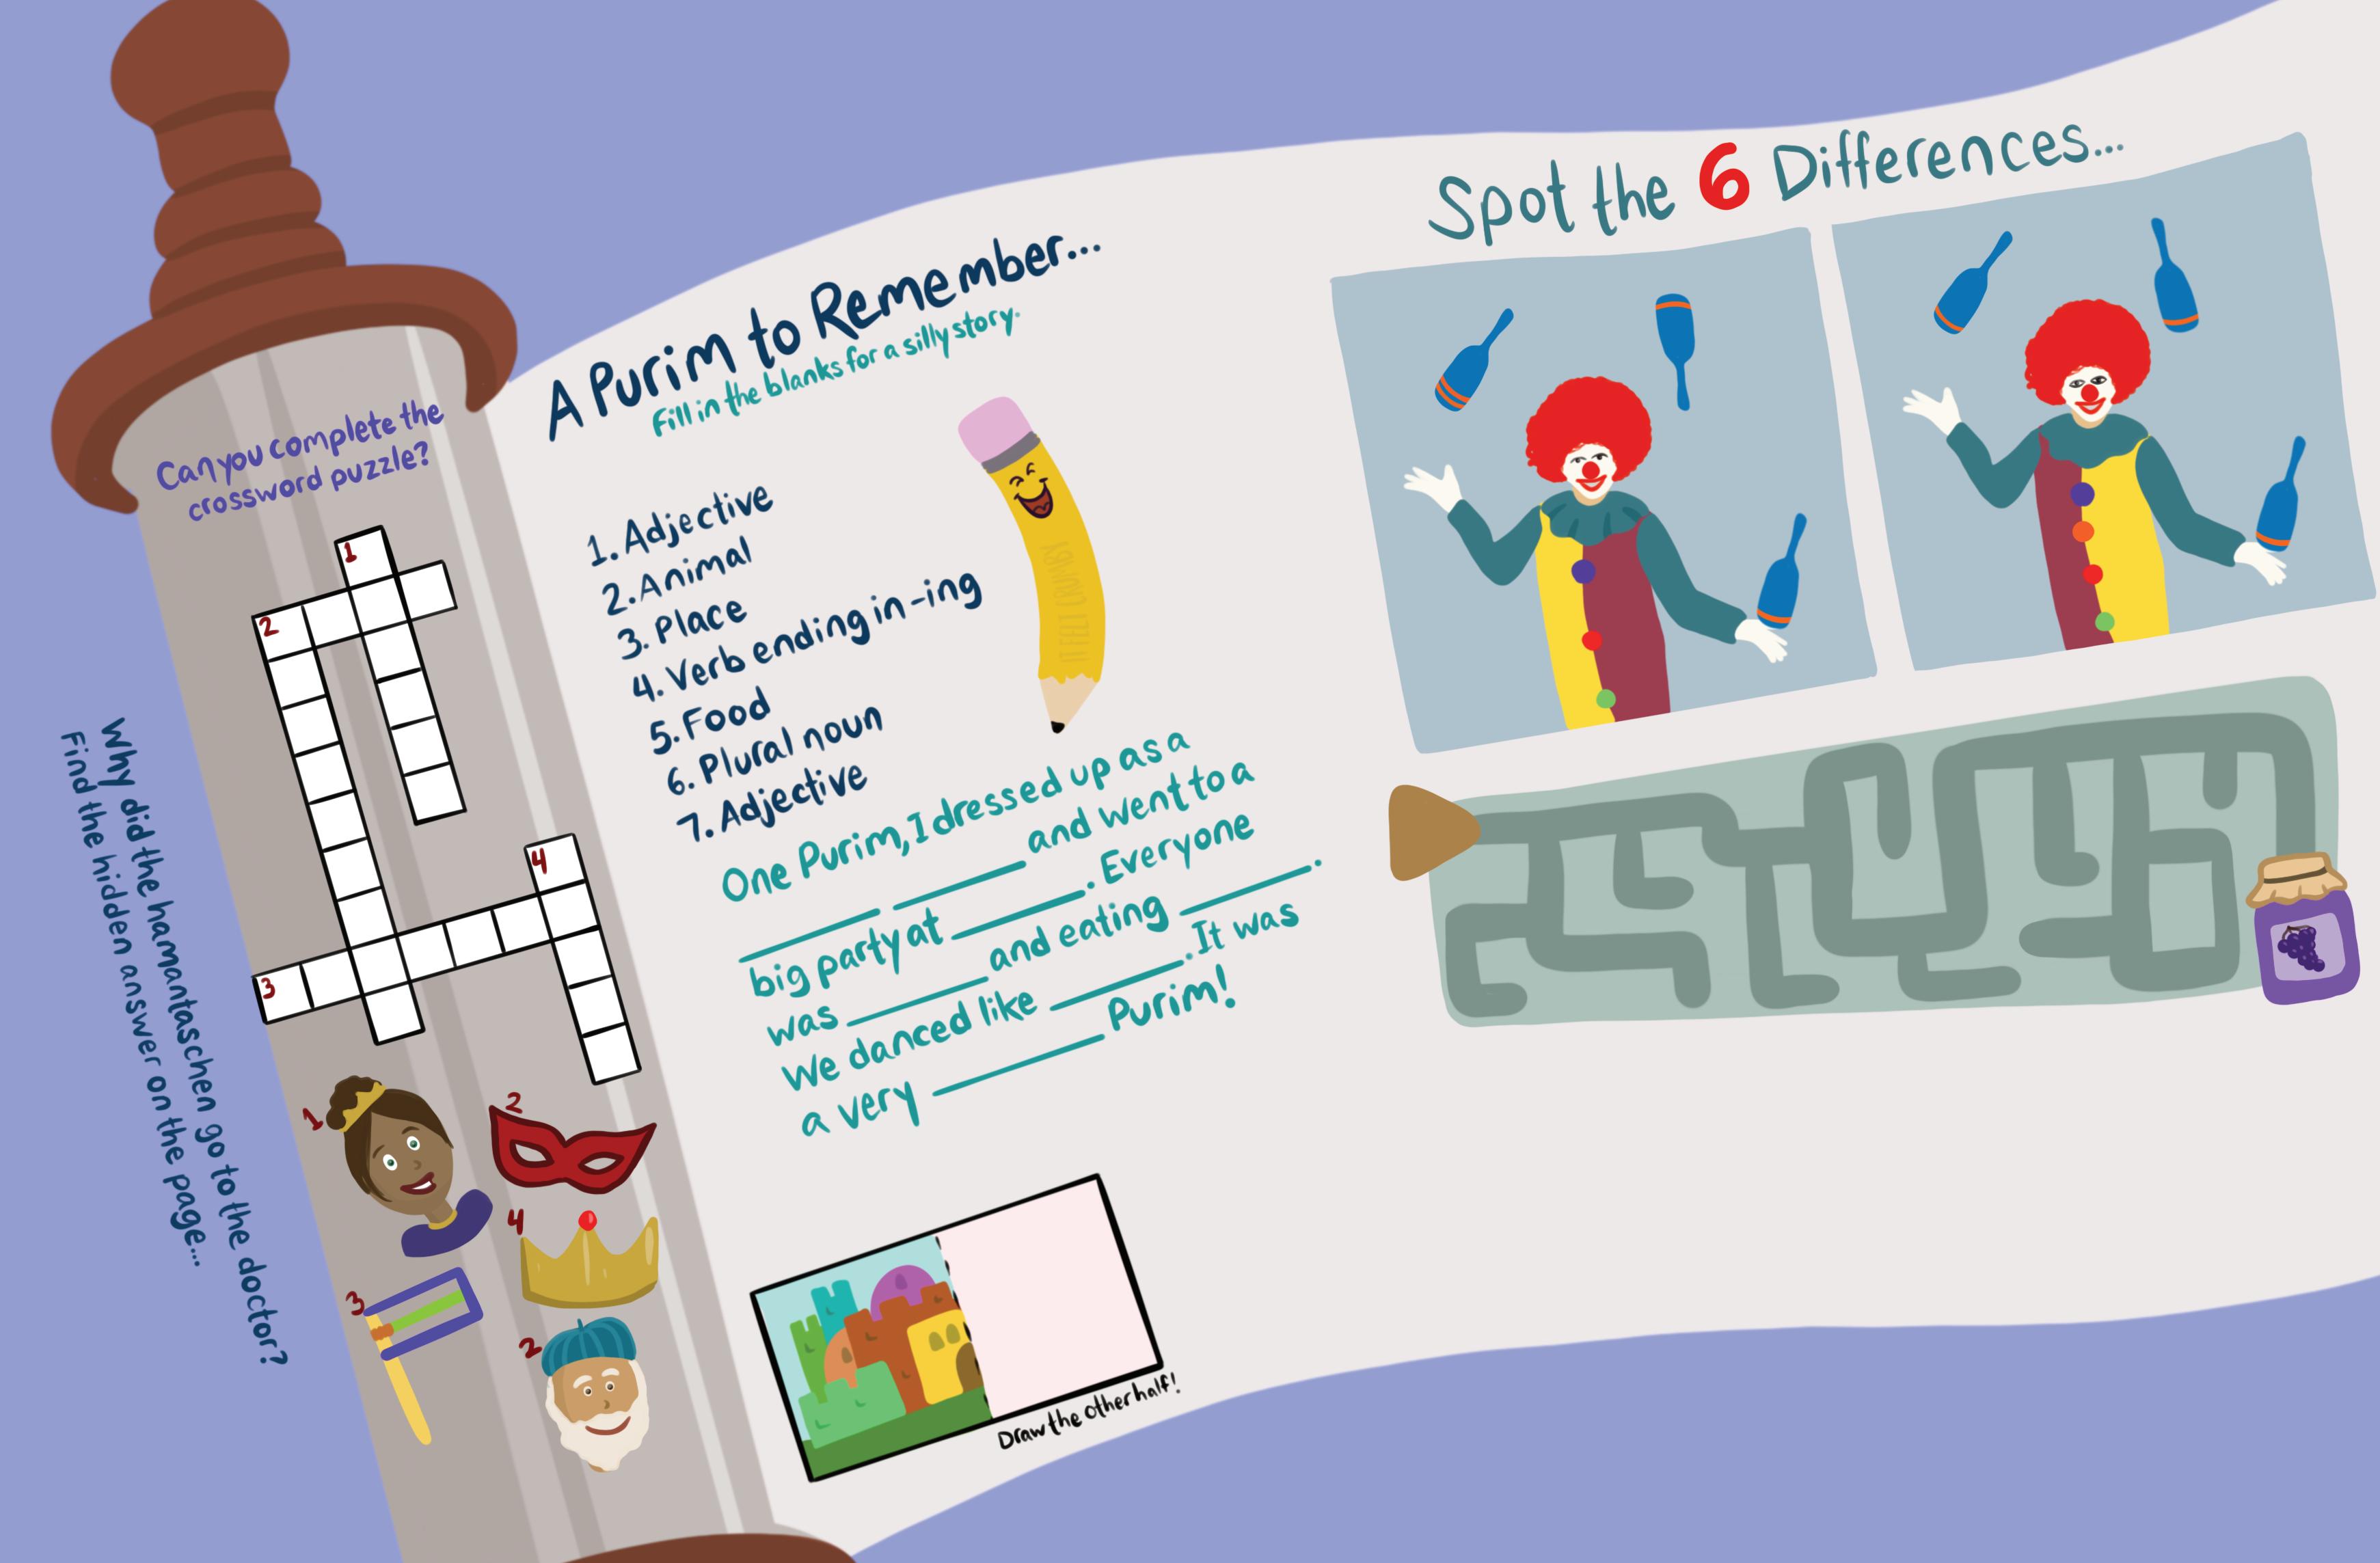 Can you complete the
crossword puzzle?
1
2
4
3
1
2
4
3
2
Why did the hamantaschen go to the doctor?
Find the hidden answer on the page...
A Purim to Remember...
Fill in the blanks for a silly story.
1. Adjective
2. Animal
3. Place
4. Verb ending in -ing
5. Food
6. Plural noun
7. Adjective
One Purim, I dressed up as a
______ ______ and went to a
big party at ______. Everyone
was ______ and eating ______.
We danced like ______. It was
a very ______ Purim!
Draw the other half!
Spot the 6 Differences...